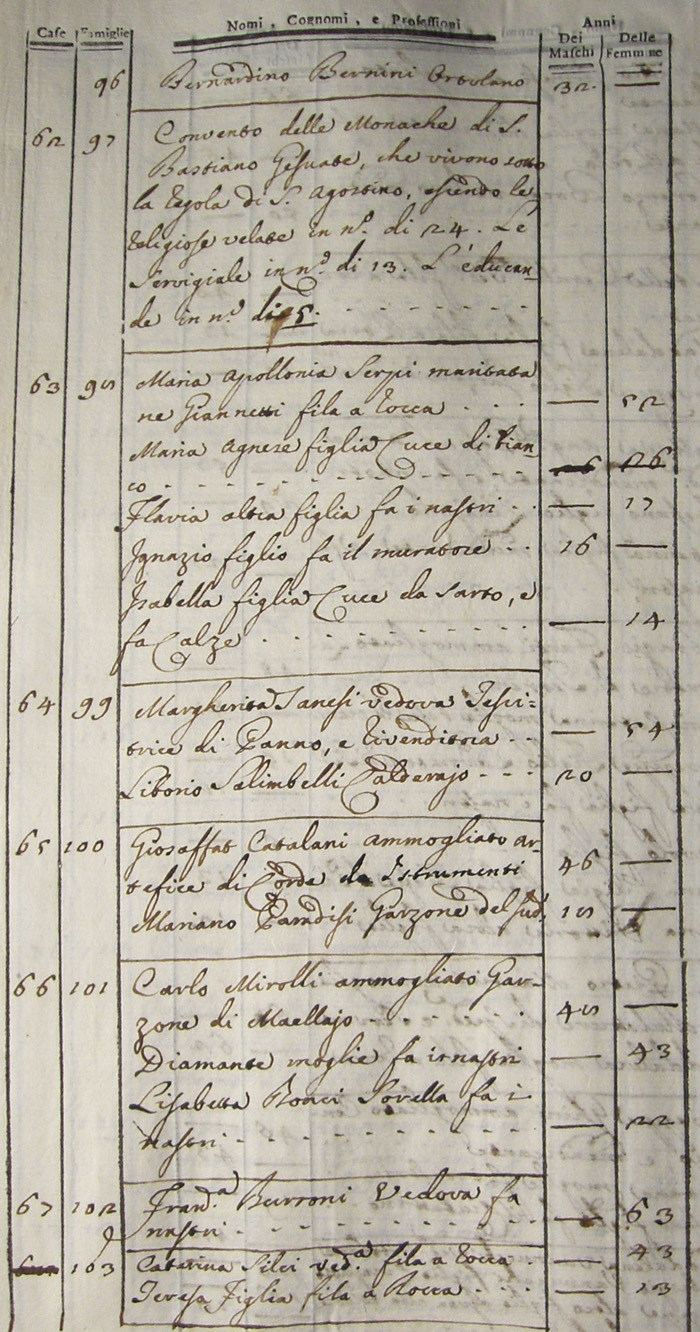 Case Famiglie Nomi, Cognomi, e Professioni Anni
Dei Maschi Delle Femmine
96 Bernardino Bernini Ortolano 32
62 97 Convento delle Monache di S.
Bastiano Gesuate, che vivono sotto
la Regola di S. Agostino, essendo le
Religiose velate in n.º di 24. Le
Servigiale in n.º di 13. L'educan-
de in n.º di 5.
63 98 Maria Apollonia Serpi maritata
ne Giannetti fila a Rocca — 52
Maria Agnese figlia Cuce di bian
co 26
Flavia altra figlia fa i nastri — 17
Ignazio figlio fa il muratore 16 —
Isabella figlia Cuce da Sarto, e
fa Calze — 14
64 99 Margherita Sanesi vedova Tessi=
trice di Panno, e Rivenditora — 54
Liborio Salimbelli Calderajo 20 —
65 100 Giosaffat Catalani ammogliato Ar-
tefice di Corde da Istrumenti 46 —
Mariano Paradisi Garzone del sud. 18 —
66 101 Carlo Mirolli ammogliato Gar-
zone di Maellajo 48 —
Diamante moglie fa i nastri — 43
Lisabetta Bonci Sorella fa i
nastri — 22
67 102 Franc.ª Burroni Vedova fa
nastri — 63
103 Caterina Silei ved.ª fila a Rocca — 43
Teresa Figlia fila a Rocca — 13